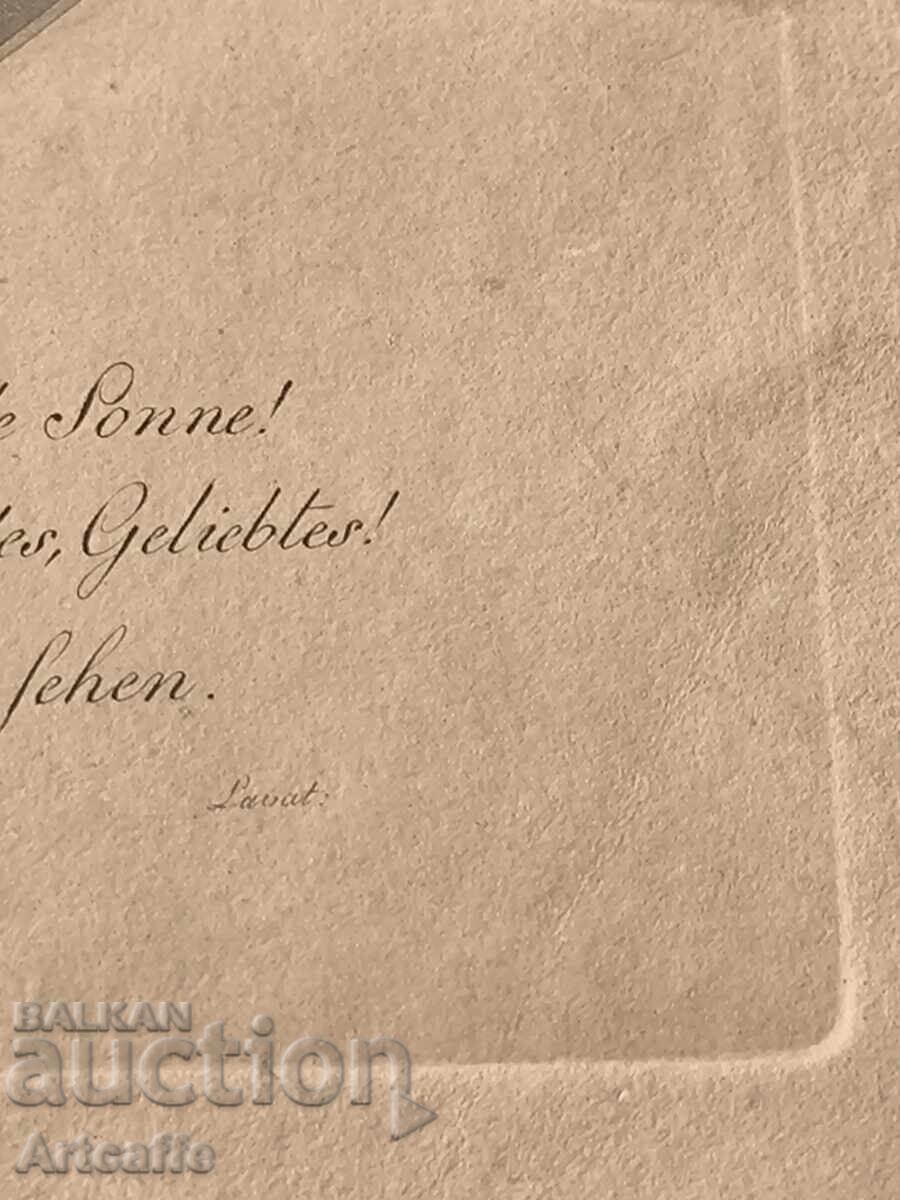 Sonne!
Geliebtes!
sehen.
Lavat:
BALKAN
auction
Artcaffe